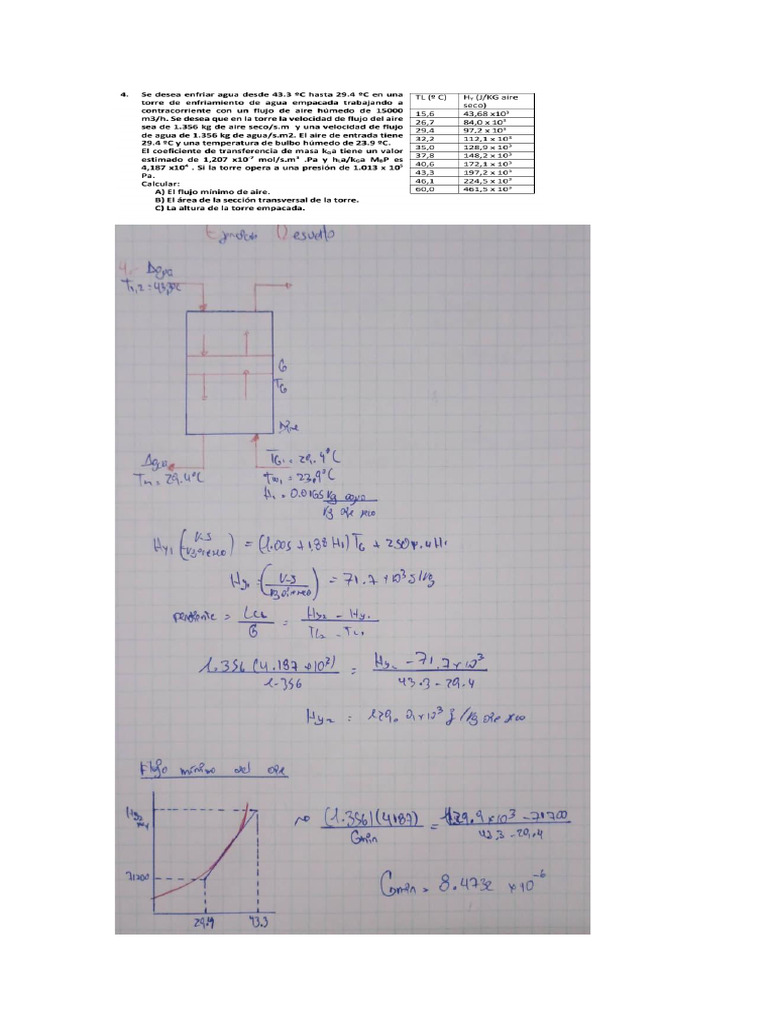 4. Se desea enfriar agua desde 43.3 ºC hasta 29.4 ºC en una
torre de enfriamiento de agua empacada trabajando a
contracorriente con un flujo de aire húmedo de 15000
m3/h. Se desea que en la torre la velocidad de flujo del aire
sea de 1.356 kg de aire seco/s.m y una velocidad de flujo
de agua de 1.356 kg de agua/s.m2. El aire de entrada tiene
29.4 ºC y una temperatura de bulbo húmedo de 23.9 ºC.
El coeficiente de transferencia de masa kGa tiene un valor
estimado de 1,207 x10⁻⁷ mol/s.m³ .Pa y hLa/kGa MBP es
4,187 x10⁴ . Si la torre opera a una presión de 1.013 x 10⁵
Pa.
Calcular:
A) El flujo mínimo de aire.
B) El área de la sección transversal de la torre.
C) La altura de la torre empacada.
TL (º C) Hy (J/KG aire seco)
15,6 43,68 x10³
26,7 84,0 x 10³
29,4 97,2 x 10³
32,2 112,1 x 10³
35,0 128,9 x 10³
37,8 148,2 x 10³
40,6 172,1 x 10³
43,3 197,2 x 10³
46,1 224,5 x 10³
60,0 461,5 x 10³
Resuelto
4.- Agua
TL2 = 43,3ºC
G
TG
Aire
Agua
TL1 = 29.4ºC
TG1 = 29.4ºC
tw1 = 23,9ºC
H1 = 0.0165 Kg agua
Kg aire seco
Hy1 (KJ/Kg aire seco) = (1.005 + 1,88 H1) TG + 2501.4 H1
Hy1 (KJ/Kg aire seco) = 71.7 x 10³ J/Kg
pendiente = LCL / G = Hy2 - Hy1 / TL2 - TL1
1.356 (4.187 x 10³) / 1.356 = Hy2 - 71,7 x 10³ / 43.3 - 29.4
Hy2 = 129.9 x 10³ J/Kg aire seco
Flujo mínimo del aire
(1.356)(4187) / Gmin = 129,9 x 10³ - 71700 / 43.3 - 29.4
71700
29.4 43.3
Gmin = 8.4732 x 10⁻⁶